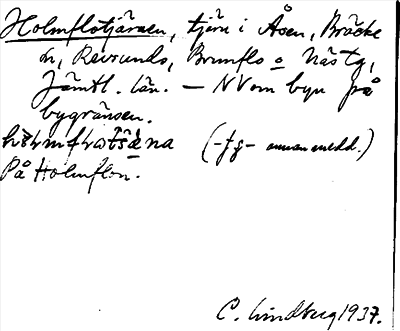 Holmflotjärnen, tjärn i Åsen, Bräcke
sn, Revsunds, Brunflo o Näs tg,
Jämtl. län. — NV om byn på
bygränsen.
(-fg- annan medd.)
På Holmflon.
C. Lindberg 1937.